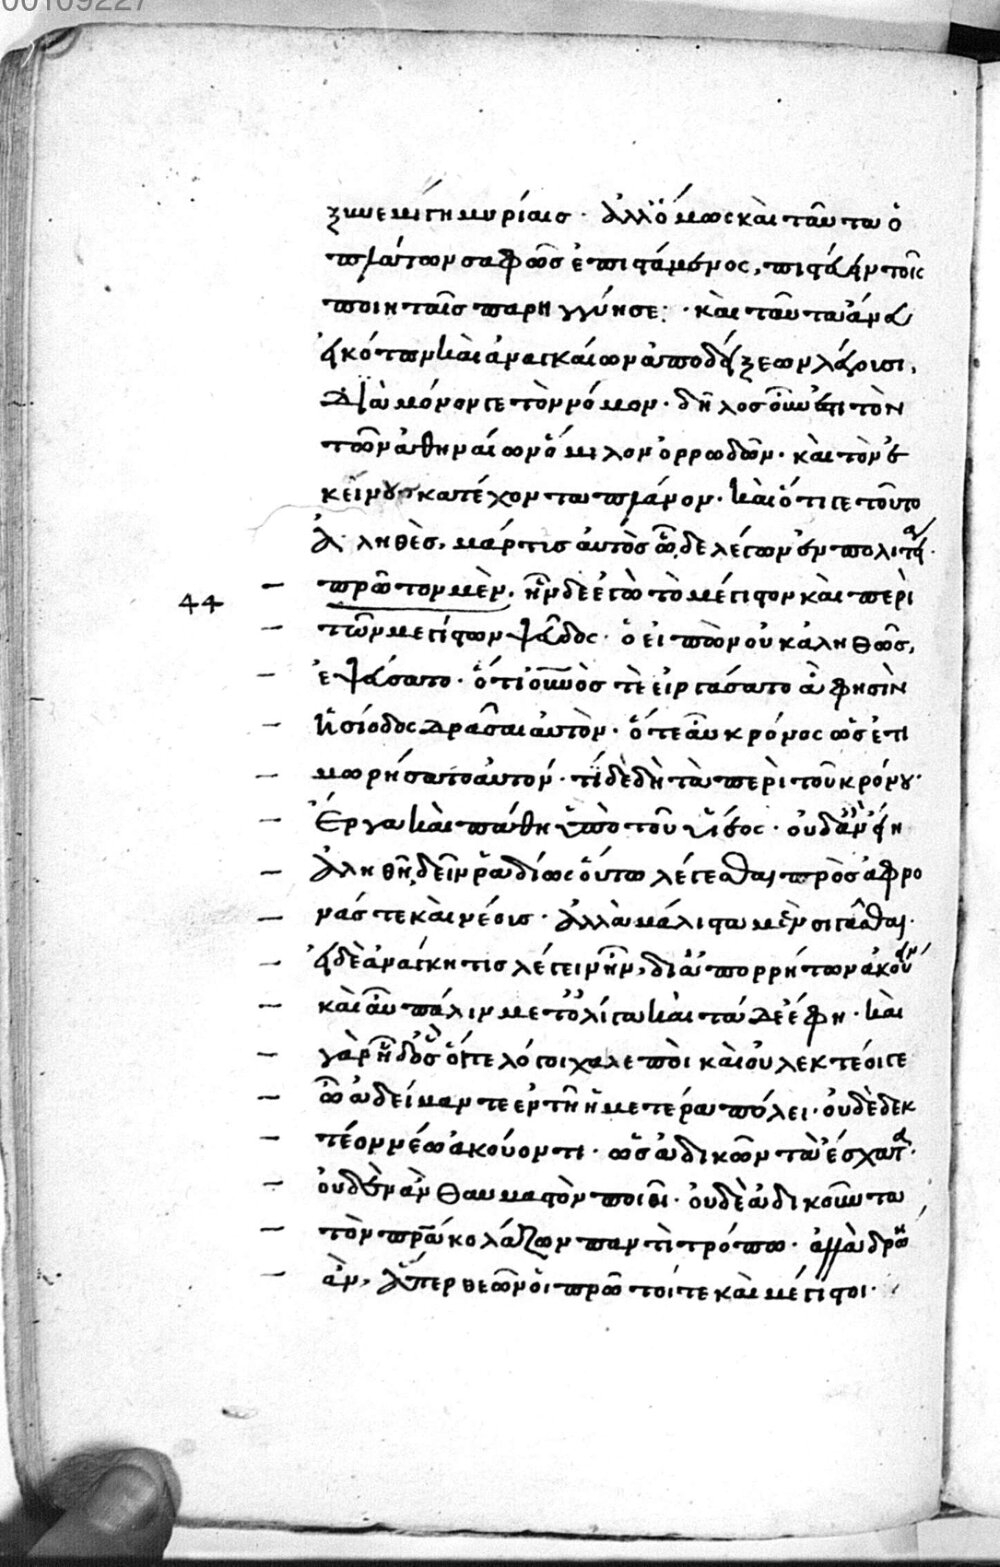 00109227
ξυνεμίγη μυρίαις· ἀλλ' ὅμως καὶ ταῦτα ὁ
πλάτων σαφῶς ἐπιστάμενος, πιστεύειν τοῖς
ποιηταῖς παρηγγύησε· καὶ ταῦτα ἄνευ
εἰκότων καὶ ἀναγκαίων ἀποδείξεων λέγουσι,
διὰ μόνον γε τὸν νόμον· δῆλος οὖν ἐστι τὸν
τῶν ἀθηναίων ὅμιλον ὀρρωδῶν· καὶ τὸν ἐ
κείνους κατέχοντα πλάνον· καὶ ὅτι γε τοῦτο
ἀληθὲς, μάρτυς αὐτὸς ὧδε λέγων ἐν πολιτείᾳ·
44 πρῶτον μὲν, ἦν δ' ἐγὼ τὸ μέγιστον καὶ περὶ
τῶν μεγίστων ψεῦδος· ὁ εἰπὼν οὐ καλῆ θῶς,
ἐψεύσατο· ὅτι οὐνός τε εἰργάσατο ἃ φησὶν
ἡσίοδος δρᾶσαι αὐτὸν· ὅτε αὖ κρόνος ὡς ἐτι
μωρήσατο αὐτόν· τὶ δὲ δὴ τὰ περὶ τοῦ κρόνου
ἔργα καὶ πάθη ὑπὸ τοῦ υἱέος· οὐδ' ἂν εἰ ἦν
ἀληθῆ, δεῖν ῥαδίως οὕτω λέγεσθαι πρὸς ἄφρο
νάς τε καὶ νέους· ἀλλὰ μάλιστα μὲν σιγᾶσθαι·
εἰ δὲ ἀνάγκη τις λέγειν ἦν, δι' ἀπορρήτων ἀκούειν
καὶ αὖ πάλιν μετ' ὀλίγα καὶ τάδε ἔφη· καὶ
γὰρ ἦ δ' ὃς οὗτοί γε λόγοι χαλεποὶ καὶ οὐ λεκτέοι γε
ὦ ἀδείμαντε ἐν τῆ ἡμετέρα πόλει· οὐδὲ λεκ
τέον νέω ἀκούοντι· ὡς ἀδικῶν τὰ ἔσχατα·
οὐδὲν ἂν θαυμαστὸν ποιοῖ· οὐδὲ ἀδικοῦντα
τὸν πρᾶ κολάζων παντὶ τρόπω· ἀλλὰ δρώη
ἂν, ἅπερ θεῶν οἱ πρῶτοί τε καὶ μέγιστοι·